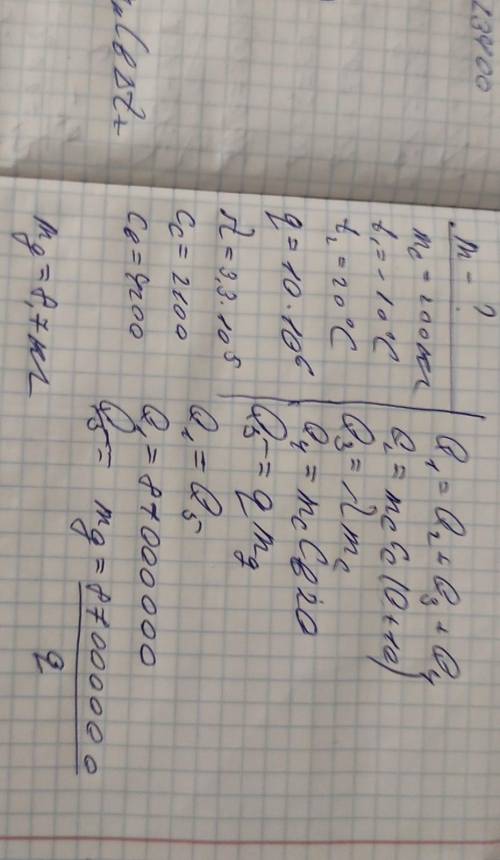 23400
m - ?
mc = 200кг
t₁ = -10°C
t₂ = 20°C
q = 10·10⁶
λ = 3,3·10⁵
Cc = 2100
Cв = 4200
mg = 8,7кг
Q₁ = Q₂ + Q₃ + Q₄
Q₂ = mcCc(0+10)
Q₃ = λmc
Q₄ = mcCв20
Q₅ = qmg
Q₁ = Q₅
Q₁ = 87000000
Q₅ = mg = 87000000
q